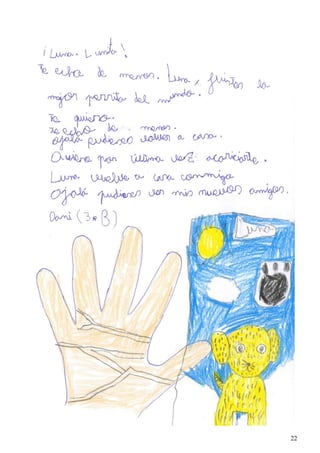 ¡Luna. Lunita!
Te echre de menos. Luna, fuistes la
mejor perrita del mundo.
Te quiero.
Te echo de menos.
Ojala pudieses volver a casa.
Quiero por última vez acariciarte.
Luna vuelve a casa conmigo
Ojalá pudieses ver mis nuevos amigos.
Dani (3º B)
Luna
22